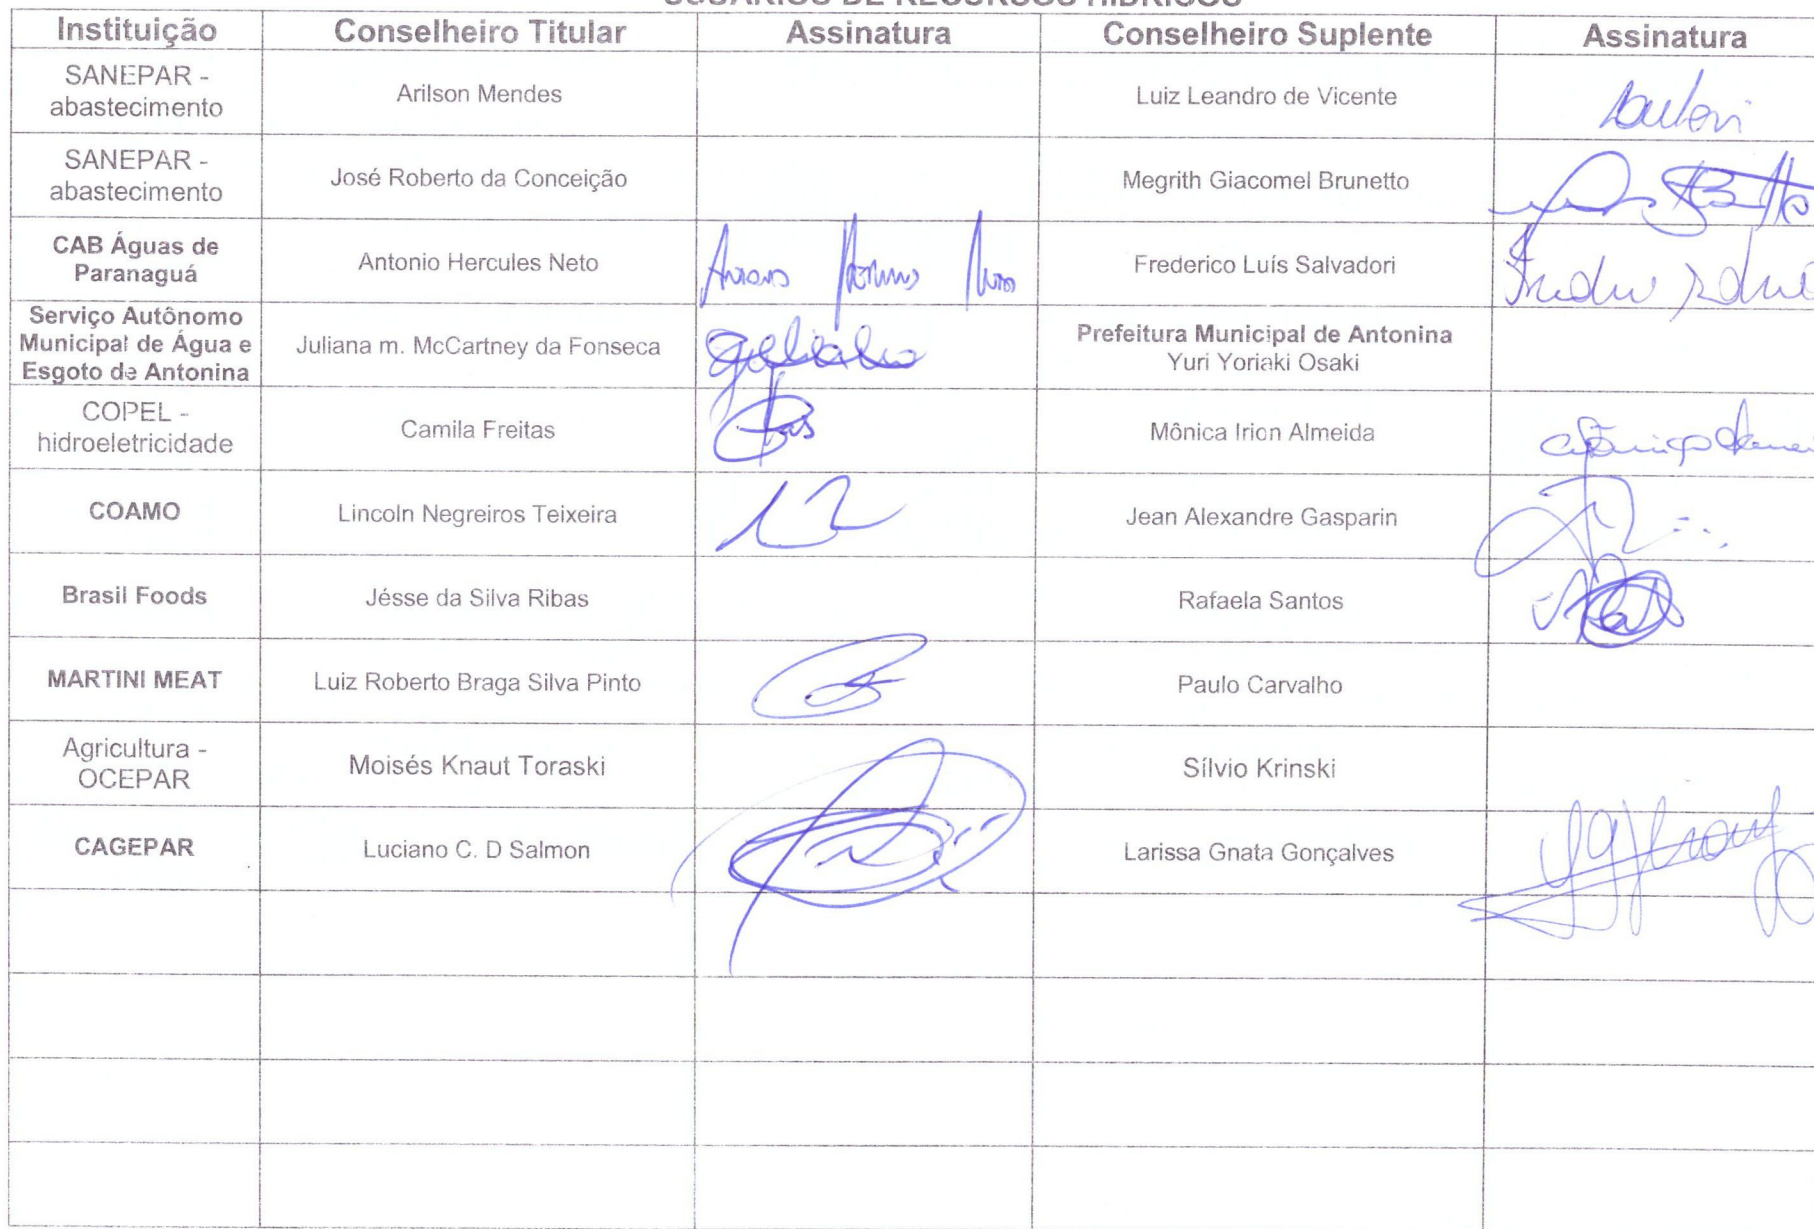 USUÁRIOS DE RECURSOS HÍDRICOS
Instituição Conselheiro Titular Assinatura Conselheiro Suplente Assinatura
SANEPAR -
abastecimento
Arilson Mendes
Luiz Leandro de Vicente
SANEPAR -
abastecimento
José Roberto da Conceição
Megrith Giacomel Brunetto
CAB Águas de
Paranaguá
Antonio Hercules Neto
Frederico Luís Salvadori
Serviço Autônomo
Municipal de Água e
Esgoto de Antonina
Juliana m. McCartney da Fonseca
Prefeitura Municipal de Antonina
Yuri Yoriaki Osaki
COPEL -
hidroeletricidade
Camila Freitas
Mônica Irion Almeida
COAMO
Lincoln Negreiros Teixeira
Jean Alexandre Gasparin
Brasil Foods
Jésse da Silva Ribas
Rafaela Santos
MARTINI MEAT
Luiz Roberto Braga Silva Pinto
Paulo Carvalho
Agricultura -
OCEPAR
Moisés Knaut Toraski
Sílvio Krinski
CAGEPAR
Luciano C. D Salmon
Larissa Gnata Gonçalves